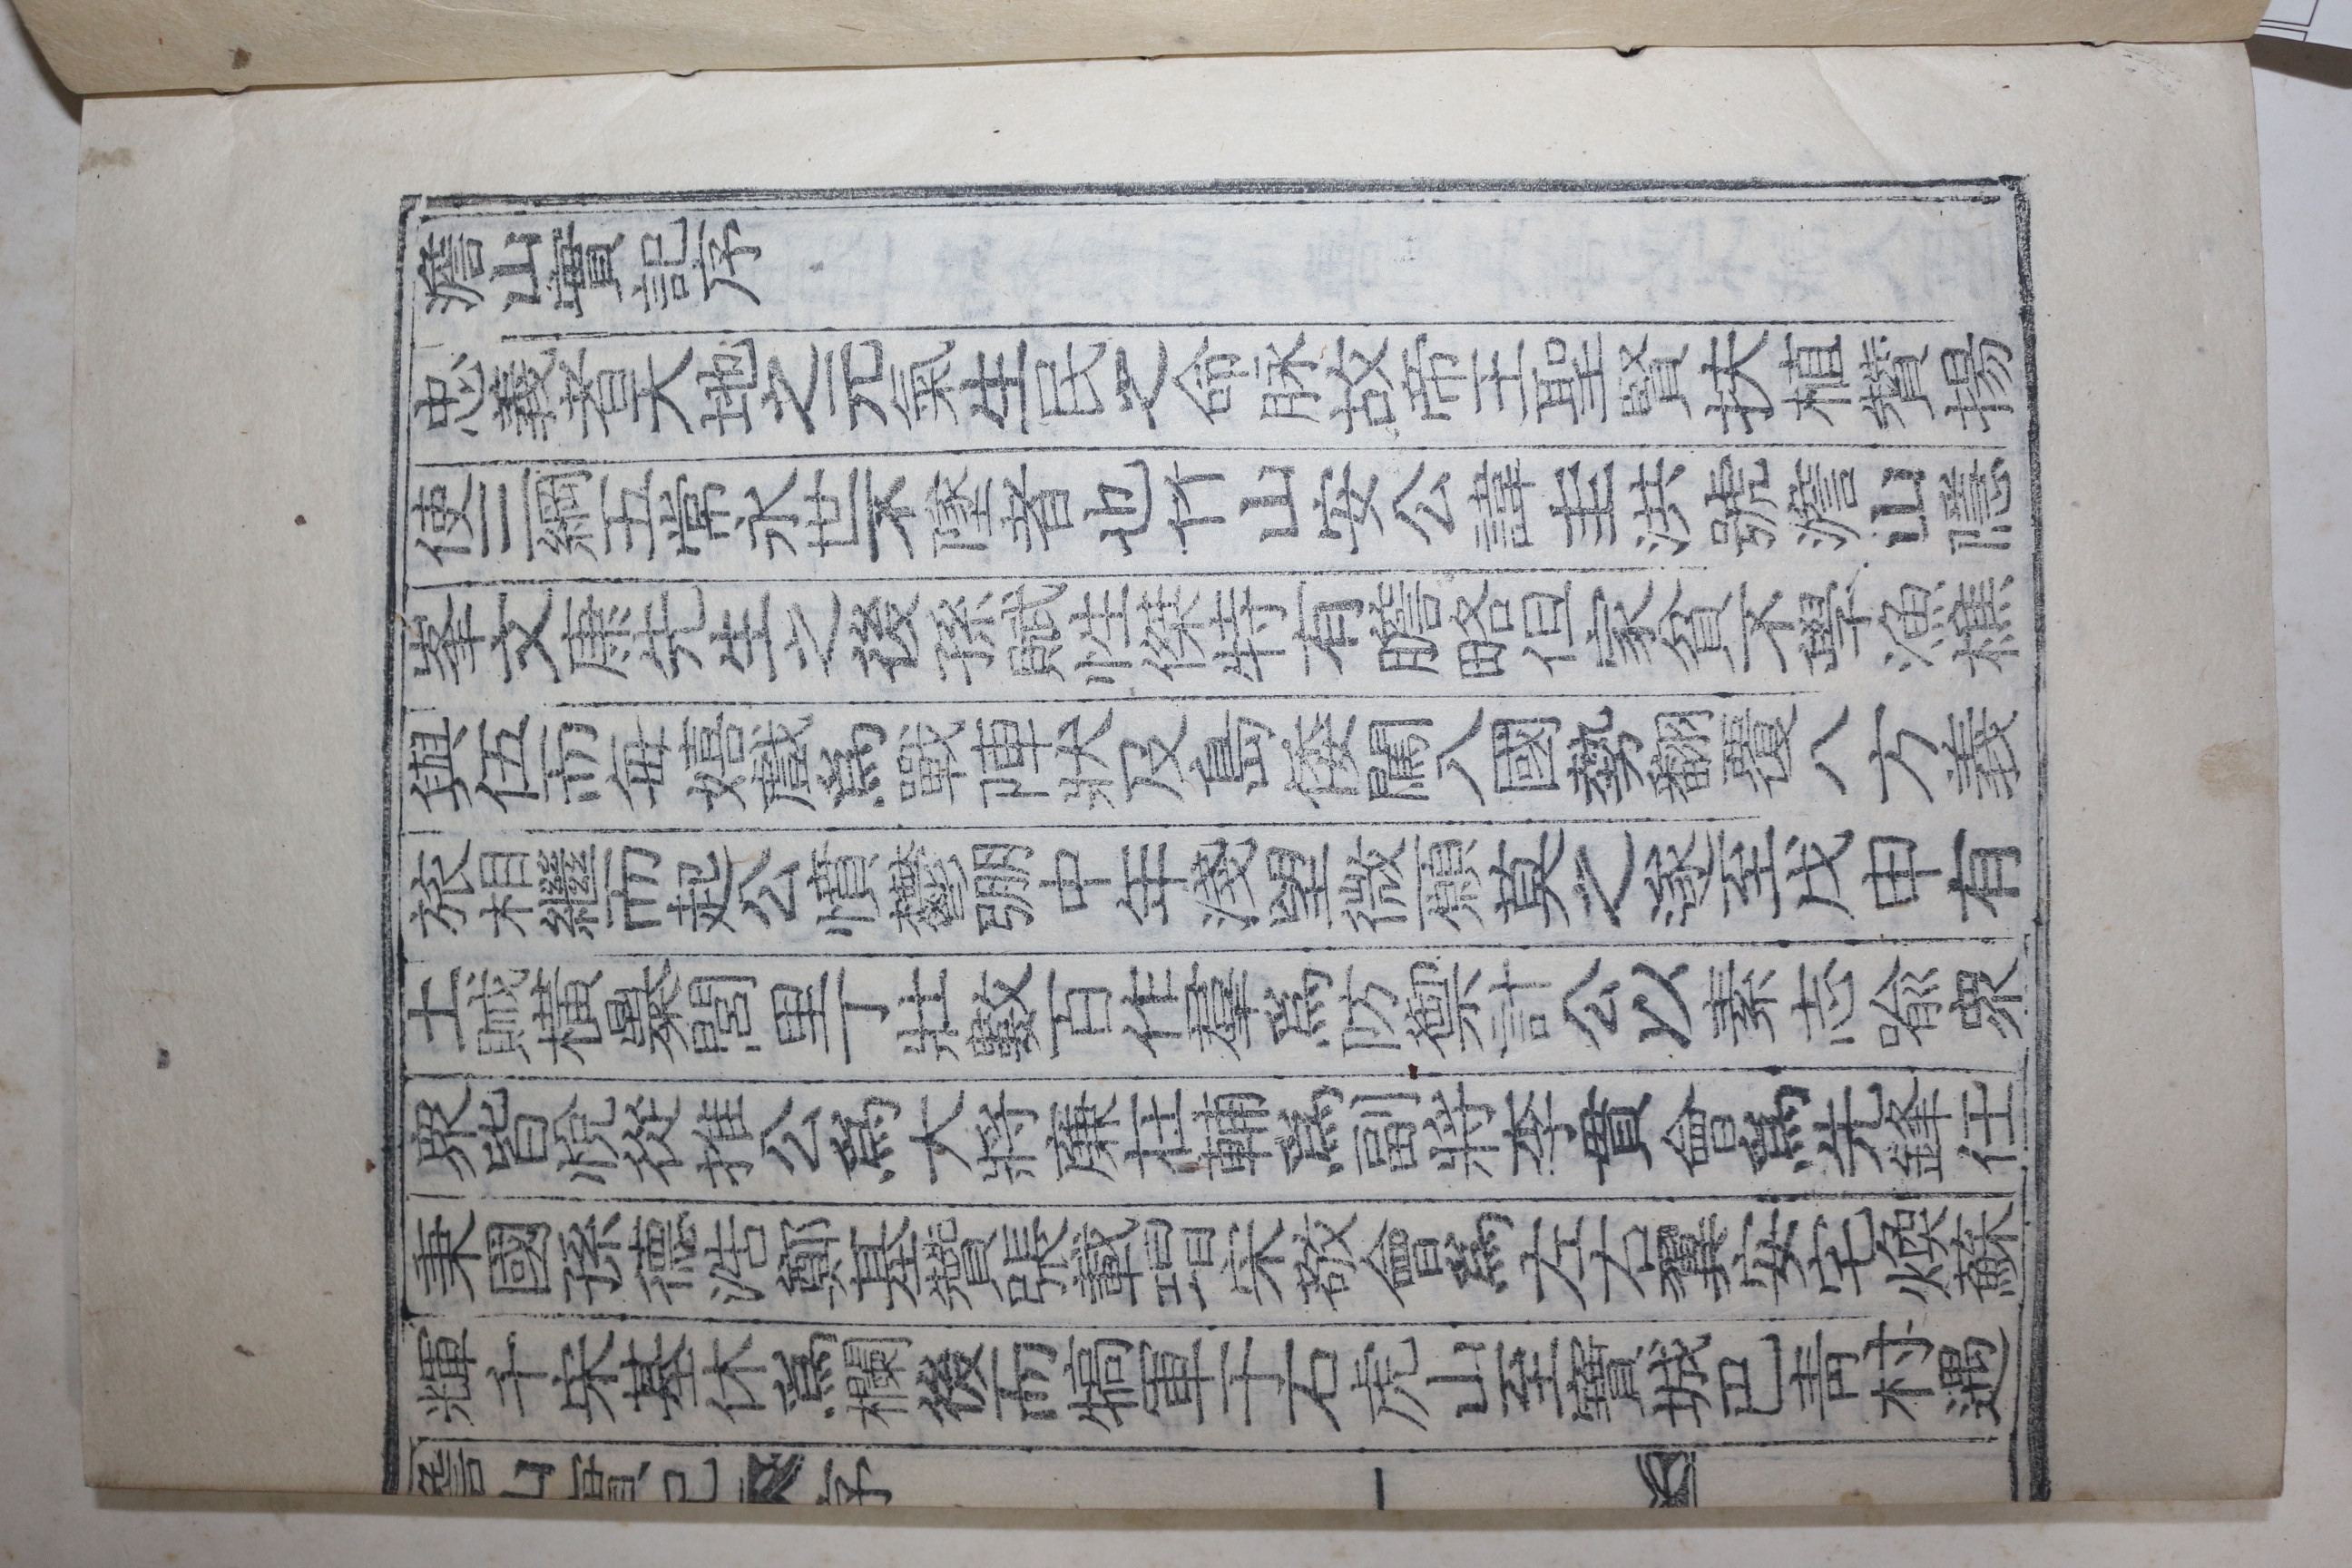 澹山實記序
忠義者天地之元氣生民之命脉故帝王聖賢扶植贊揚
使三綱五常永世不墜者也竹山安公諱圭洪號澹山隱
峯文康先生之後孫賦性傑特有膽略但家貧不學漁樵
與伍而每嬉戲爲戰陣狀及島倭闖入國勢翻覆八方義
旅相繼而起公憤鬱弸中年淺望微願莫之遂至戊申有
土賊橫暴閭里丁壯數百作羣爲防禦計公以素志喩衆
衆皆悅從推公爲大將廉在輔爲副將李貫會爲先鋒任
秉國孫德浩鄭基贊張載模宋敬會爲左右翼安宅煥蘇
輝千宋基休爲欄後而犒軍于右虎山至寶城巴靑村遇
澹山實記 序 一